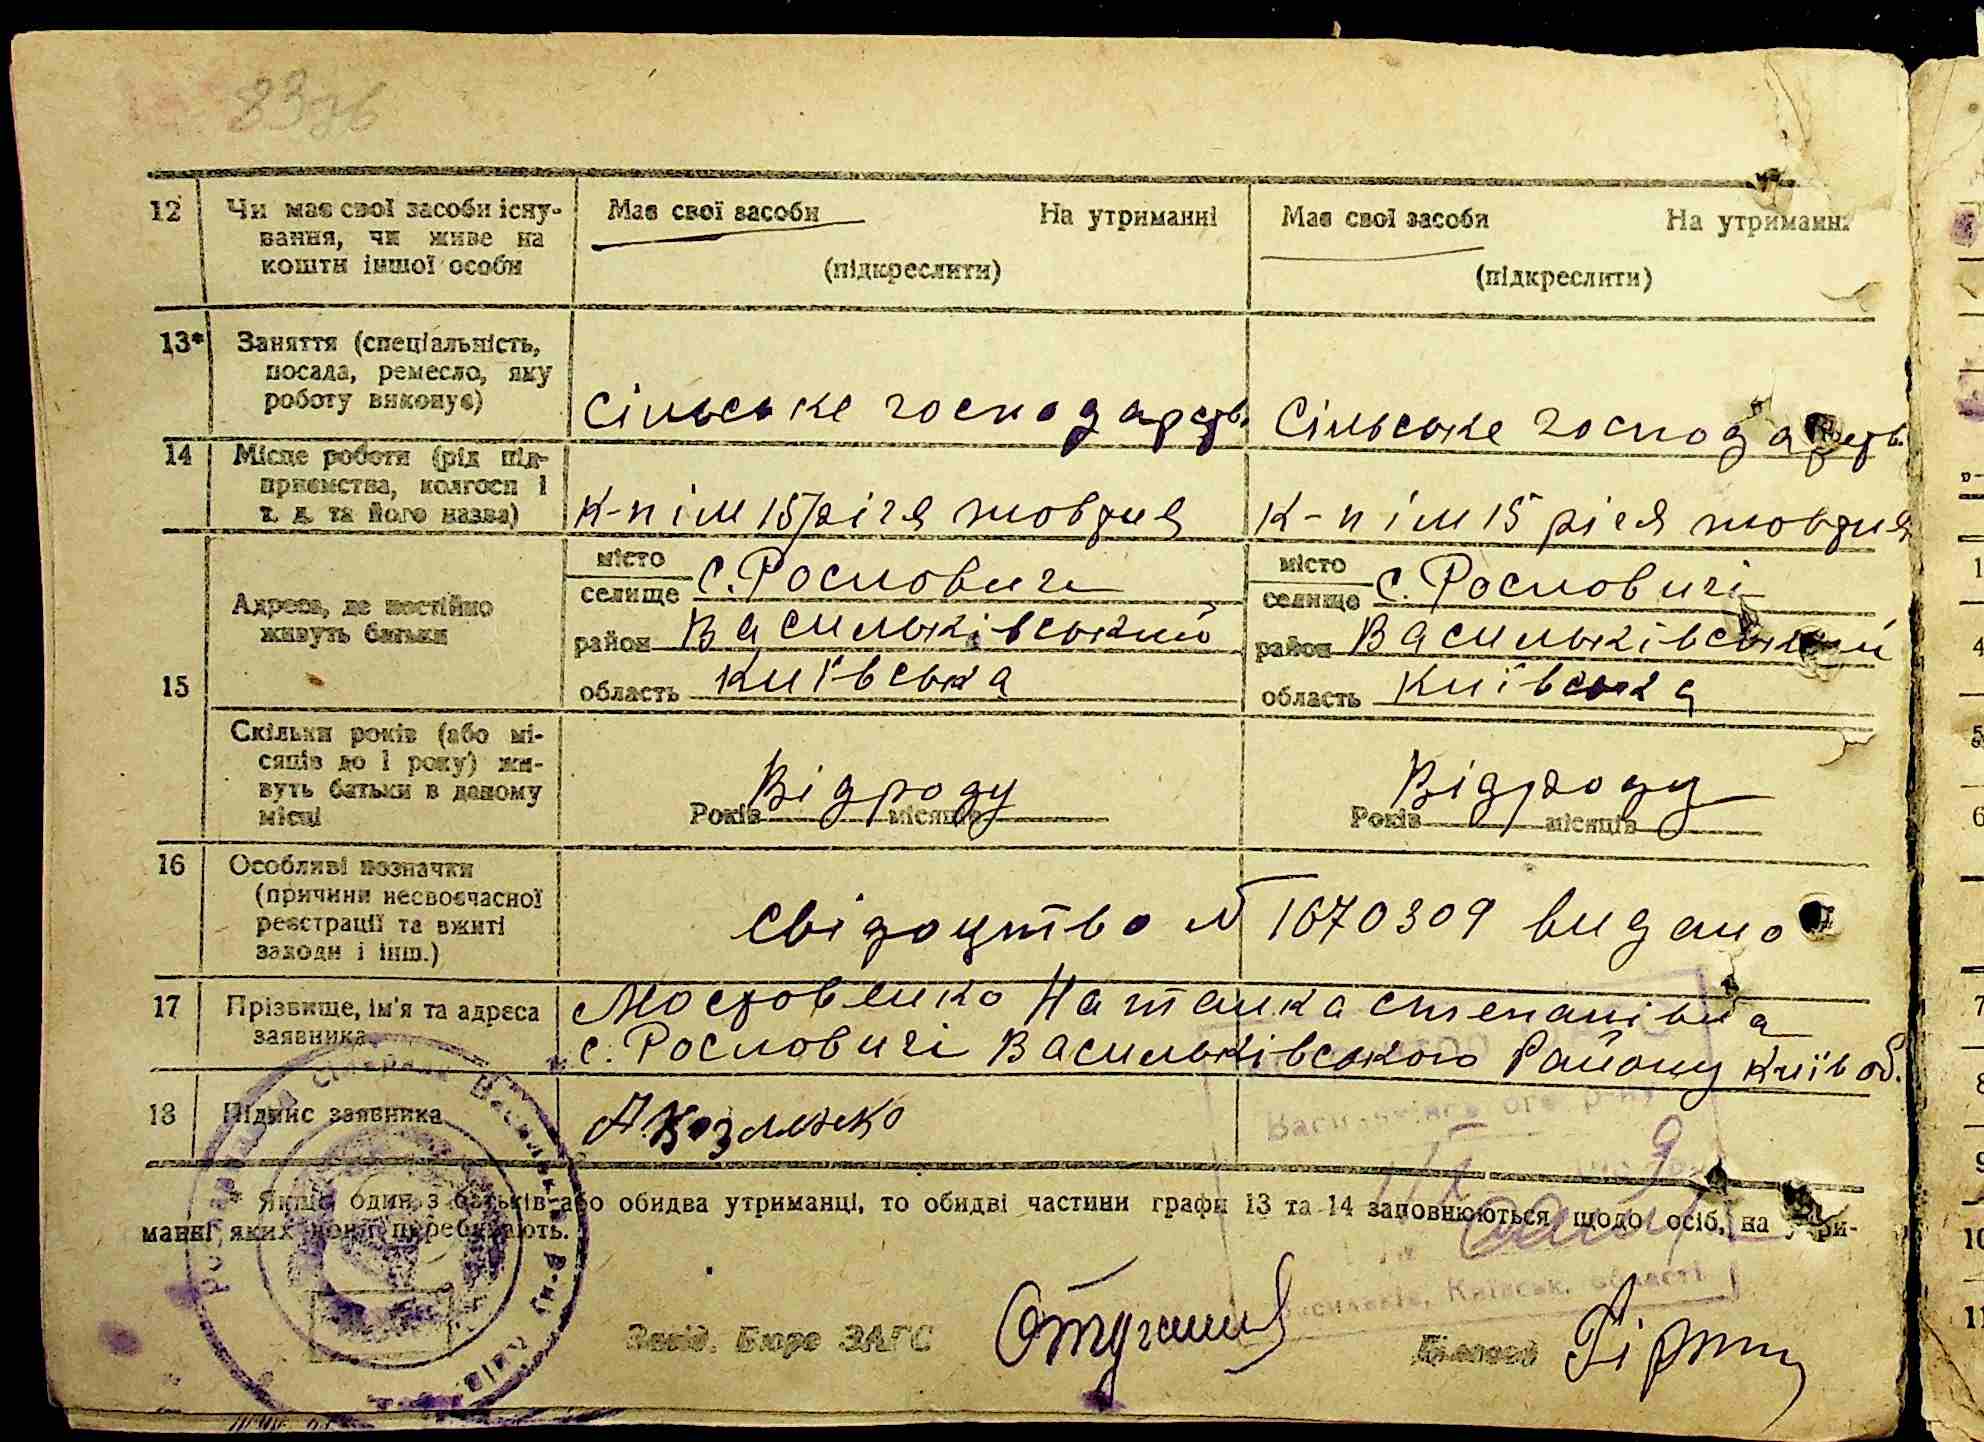 83зв
12 Чи має свої засоби існу-
вання, чи живе на
кошти іншої особи
Має свої засоби На утриманні
(підкреслити)
Має свої засоби На утриманні
(підкреслити)
13* Заняття (спеціальність,
посада, ремесло, яку
роботу виконує)
Сільське господарств.
Сільське господарств.
14 Місце роботи (рід під-
приємства, колгосп і
т. д. та його назва)
К-п ім 15 річя жовтня
К-п ім 15 річя жовтня
15
Адреса, де постійно
живуть батьки
місто
селище с. Рословичі
район Васильківський
область Київська
місто
селище с. Рословичі
район Васильківський
область Київська
Скільки років (або мі-
сяців до 1 року) жи-
вуть батьки в даному
місці
Відроду
Років місяців
Відроду
Років місяців
16 Особливі позначки
(причини несвоєчасної
реєстрації та вжиті
заходи і інш.)
свідоцтво № 1670309 видано
17 Прізвище, ім'я та адреса
заявника
Мостовенко Наталка степанівна
с. Рословичі Васильківського Району Київ об.
18 Підпис заявника
* Якщо один з батьків або обидва утриманці, то обидві частини графи 13 та 14 заповнюються щодо осіб, на утри-
манні яких вони перебувають.
Васильківського р-ну
Васильків, Київськ. області
Завід. Бюро ЗАГС
Діловод